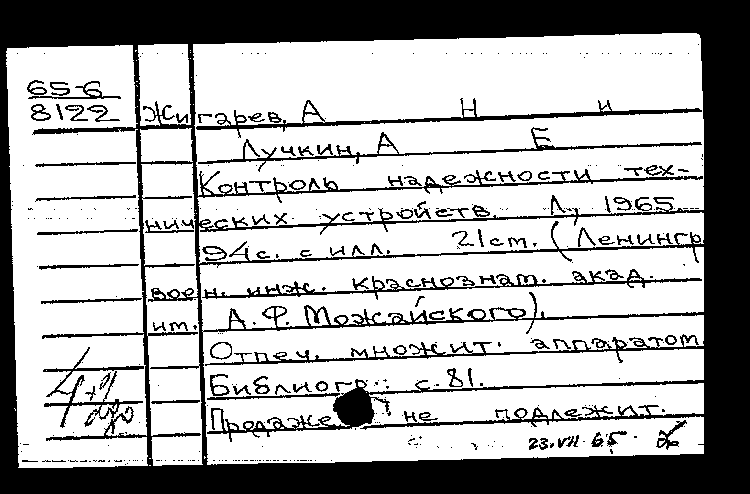 65-6
8122 Жигарев, А Н и
Лучкин, А Е
Контроль надежности тех-
нических устройств. Л., 1965
94с. с илл. 21ст. (Ленингр
воен. инж. краснознам. акад.
им. А. Ф. Можайского).
Отпеч. множит. аппаратом
Библиогр.: с. 81.
Продаже не подлежит.
23.VII 65.